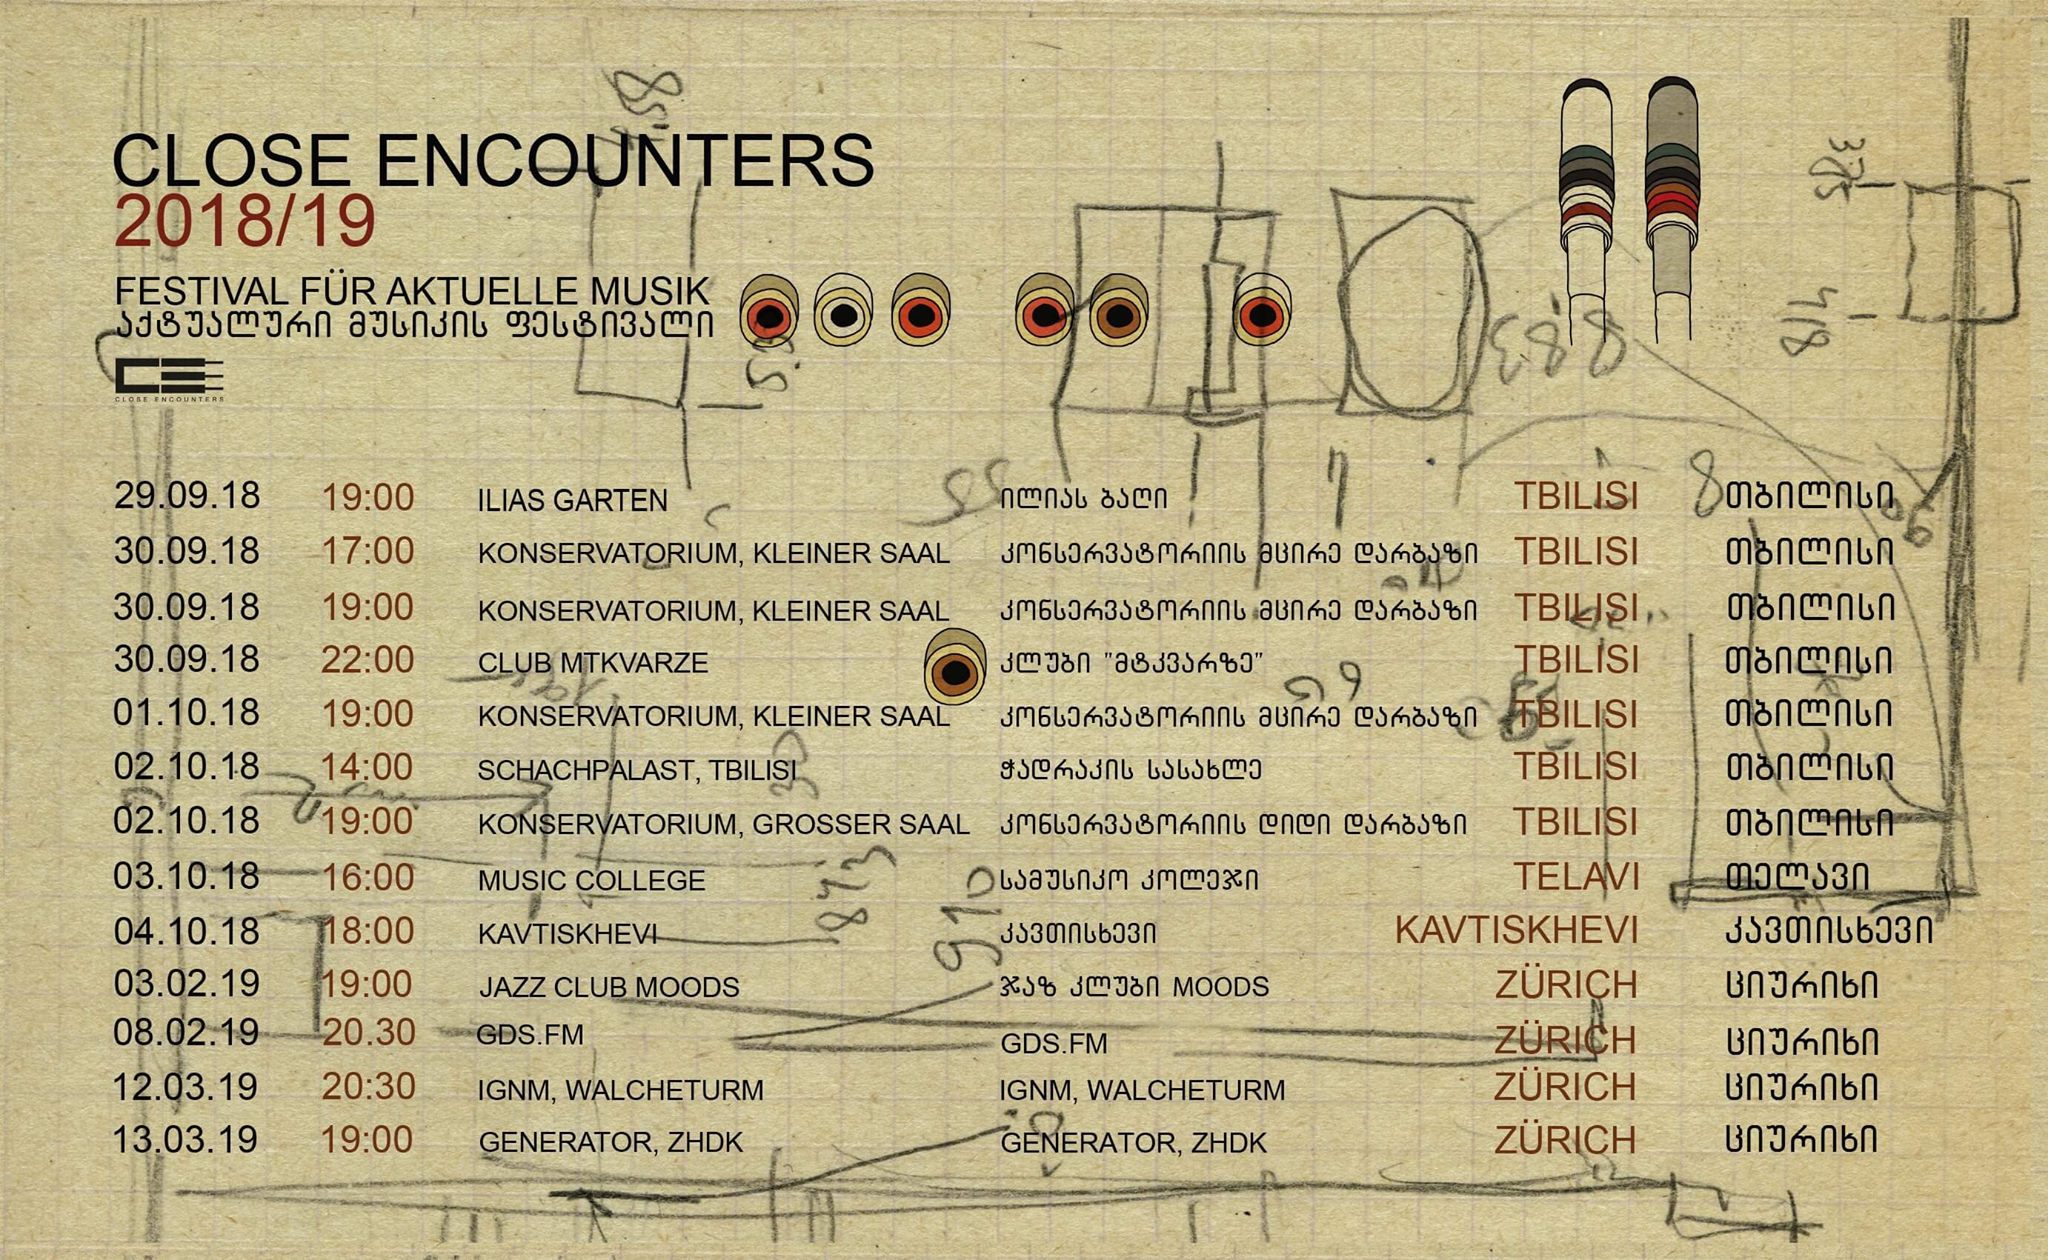 4,58
CLOSE ENCOUNTERS
2018/19
FESTIVAL FÜR AKTUELLE MUSIK
აქტუალური მუსიკის ფესტივალი
CE
CLOSE ENCOUNTERS
29.09.18 19:00 ILIAS GARTEN ილიას ბაღი TBILISI თბილისი
30.09.18 17:00 KONSERVATORIUM, KLEINER SAAL კონსერვატორიის მცირე დარბაზი TBILISI თბილისი
30.09.18 19:00 KONSERVATORIUM, KLEINER SAAL კონსერვატორიის მცირე დარბაზი TBILISI თბილისი
30.09.18 22:00 CLUB MTKVARZE კლუბი "მტკვარზე" TBILISI თბილისი
01.10.18 19:00 KONSERVATORIUM, KLEINER SAAL კონსერვატორიის მცირე დარბაზი TBILISI თბილისი
02.10.18 14:00 SCHACHPALAST, TBILISI ჭადრაკის სასახლე TBILISI თბილისი
02.10.18 19:00 KONSERVATORIUM, GROSSER SAAL კონსერვატორიის დიდი დარბაზი TBILISI თბილისი
03.10.18 16:00 MUSIC COLLEGE სამუსიკო კოლეჯი TELAVI თელავი
04.10.18 18:00 KAVTISKHEVI კავთისხევი KAVTISKHEVI კავთისხევი
03.02.19 19:00 JAZZ CLUB MOODS ჯაზ კლუბი MOODS ZÜRICH ციურიხი
08.02.19 20.30 GDS.FM GDS.FM ZÜRICH ციურიხი
12.03.19 20:30 IGNM, WALCHETURM IGNM, WALCHETURM ZÜRICH ციურიხი
13.03.19 19:00 GENERATOR, ZHDK GENERATOR, ZHDK ZÜRICH ციურიხი
873
910